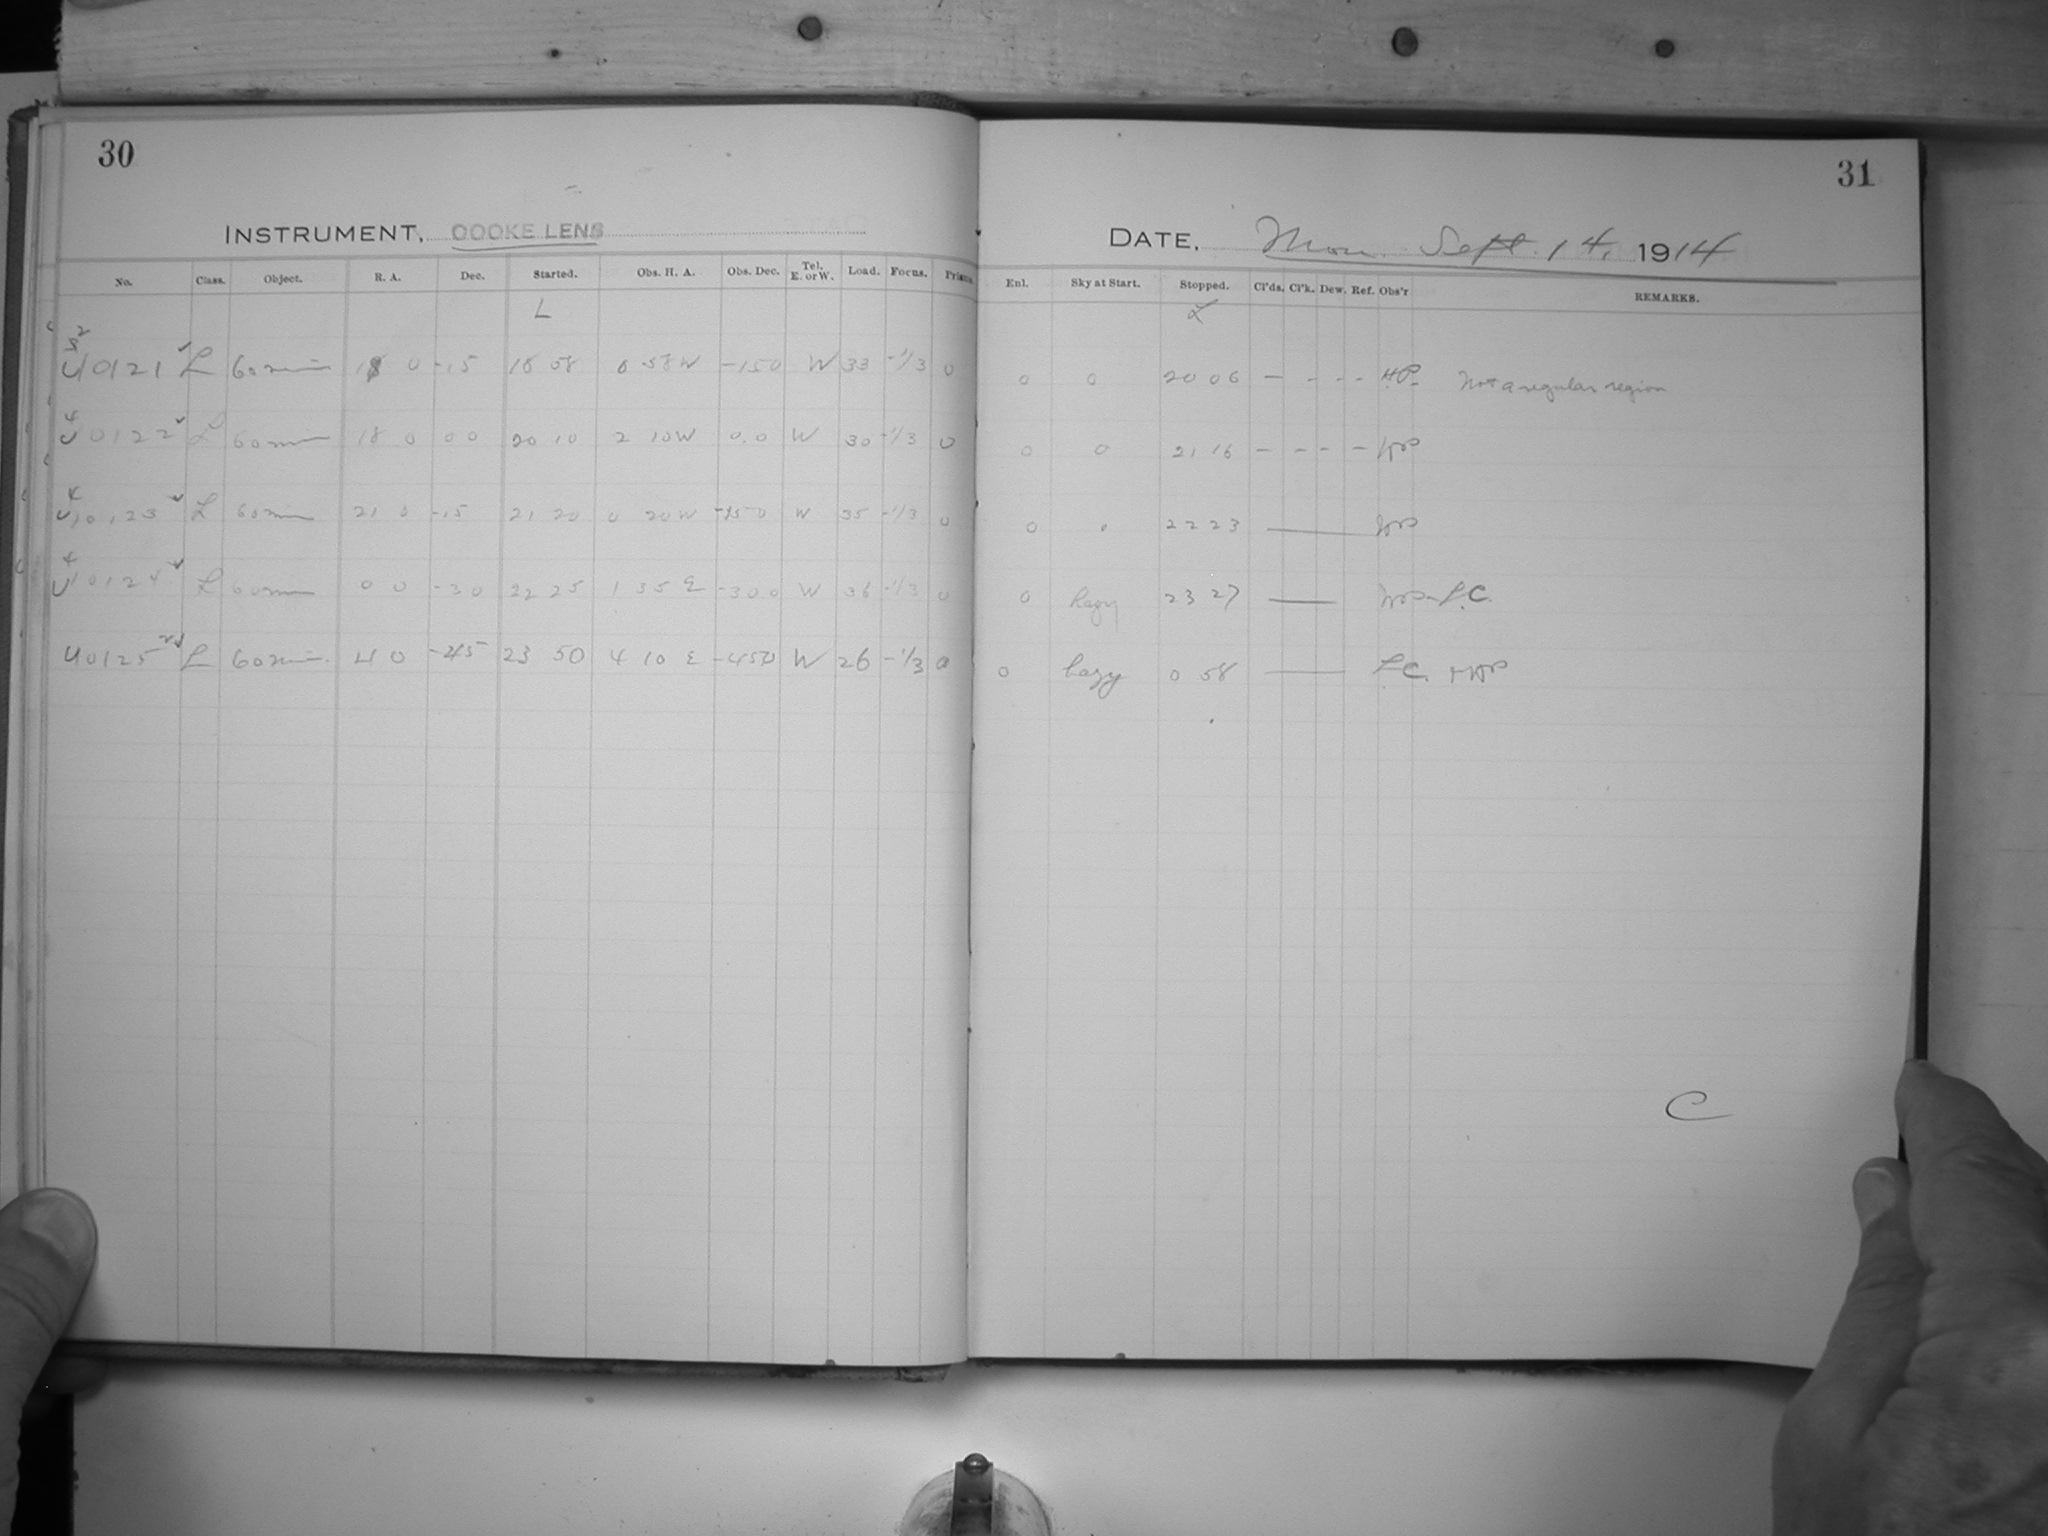 30
31
INSTRUMENT, COOKE LENS
DATE, Mon. Sept. 14, 1914
No. Class. Object. R. A. Dec. Started. Obs. H. A. Obs. Dec. Tel. E. or W. Load. Focus. Prism Enl. Sky at Start. Stopped. Cl'ds. Cl'k. Dew. Ref. Obs'r REMARKS.
L L
40121 L 60 min 18 0 -15 18 58 0 58 W -15 0 W 33 -1/3 0 0 0 20 06 - - - - Not a regular region
40122 L 60 min 18 0 0 0 20 10 2 10 W 0.0 W 30 -1/3 0 0 0 21 16 - - - -
40123 L 60 min 21 0 -15 21 20 0 20 W -15 0 W 35 -1/3 0 0 22 23 —
40124 L 60 min 0 0 -30 22 25 1 35 E -30.0 W 36 -1/3 0 0 hazy 23 27 — L.C.
40125 L 60 min. 4 0 -45 23 50 4 10 E -45 0 W 26 -1/3 0 0 hazy 0 58 — L.C.
C